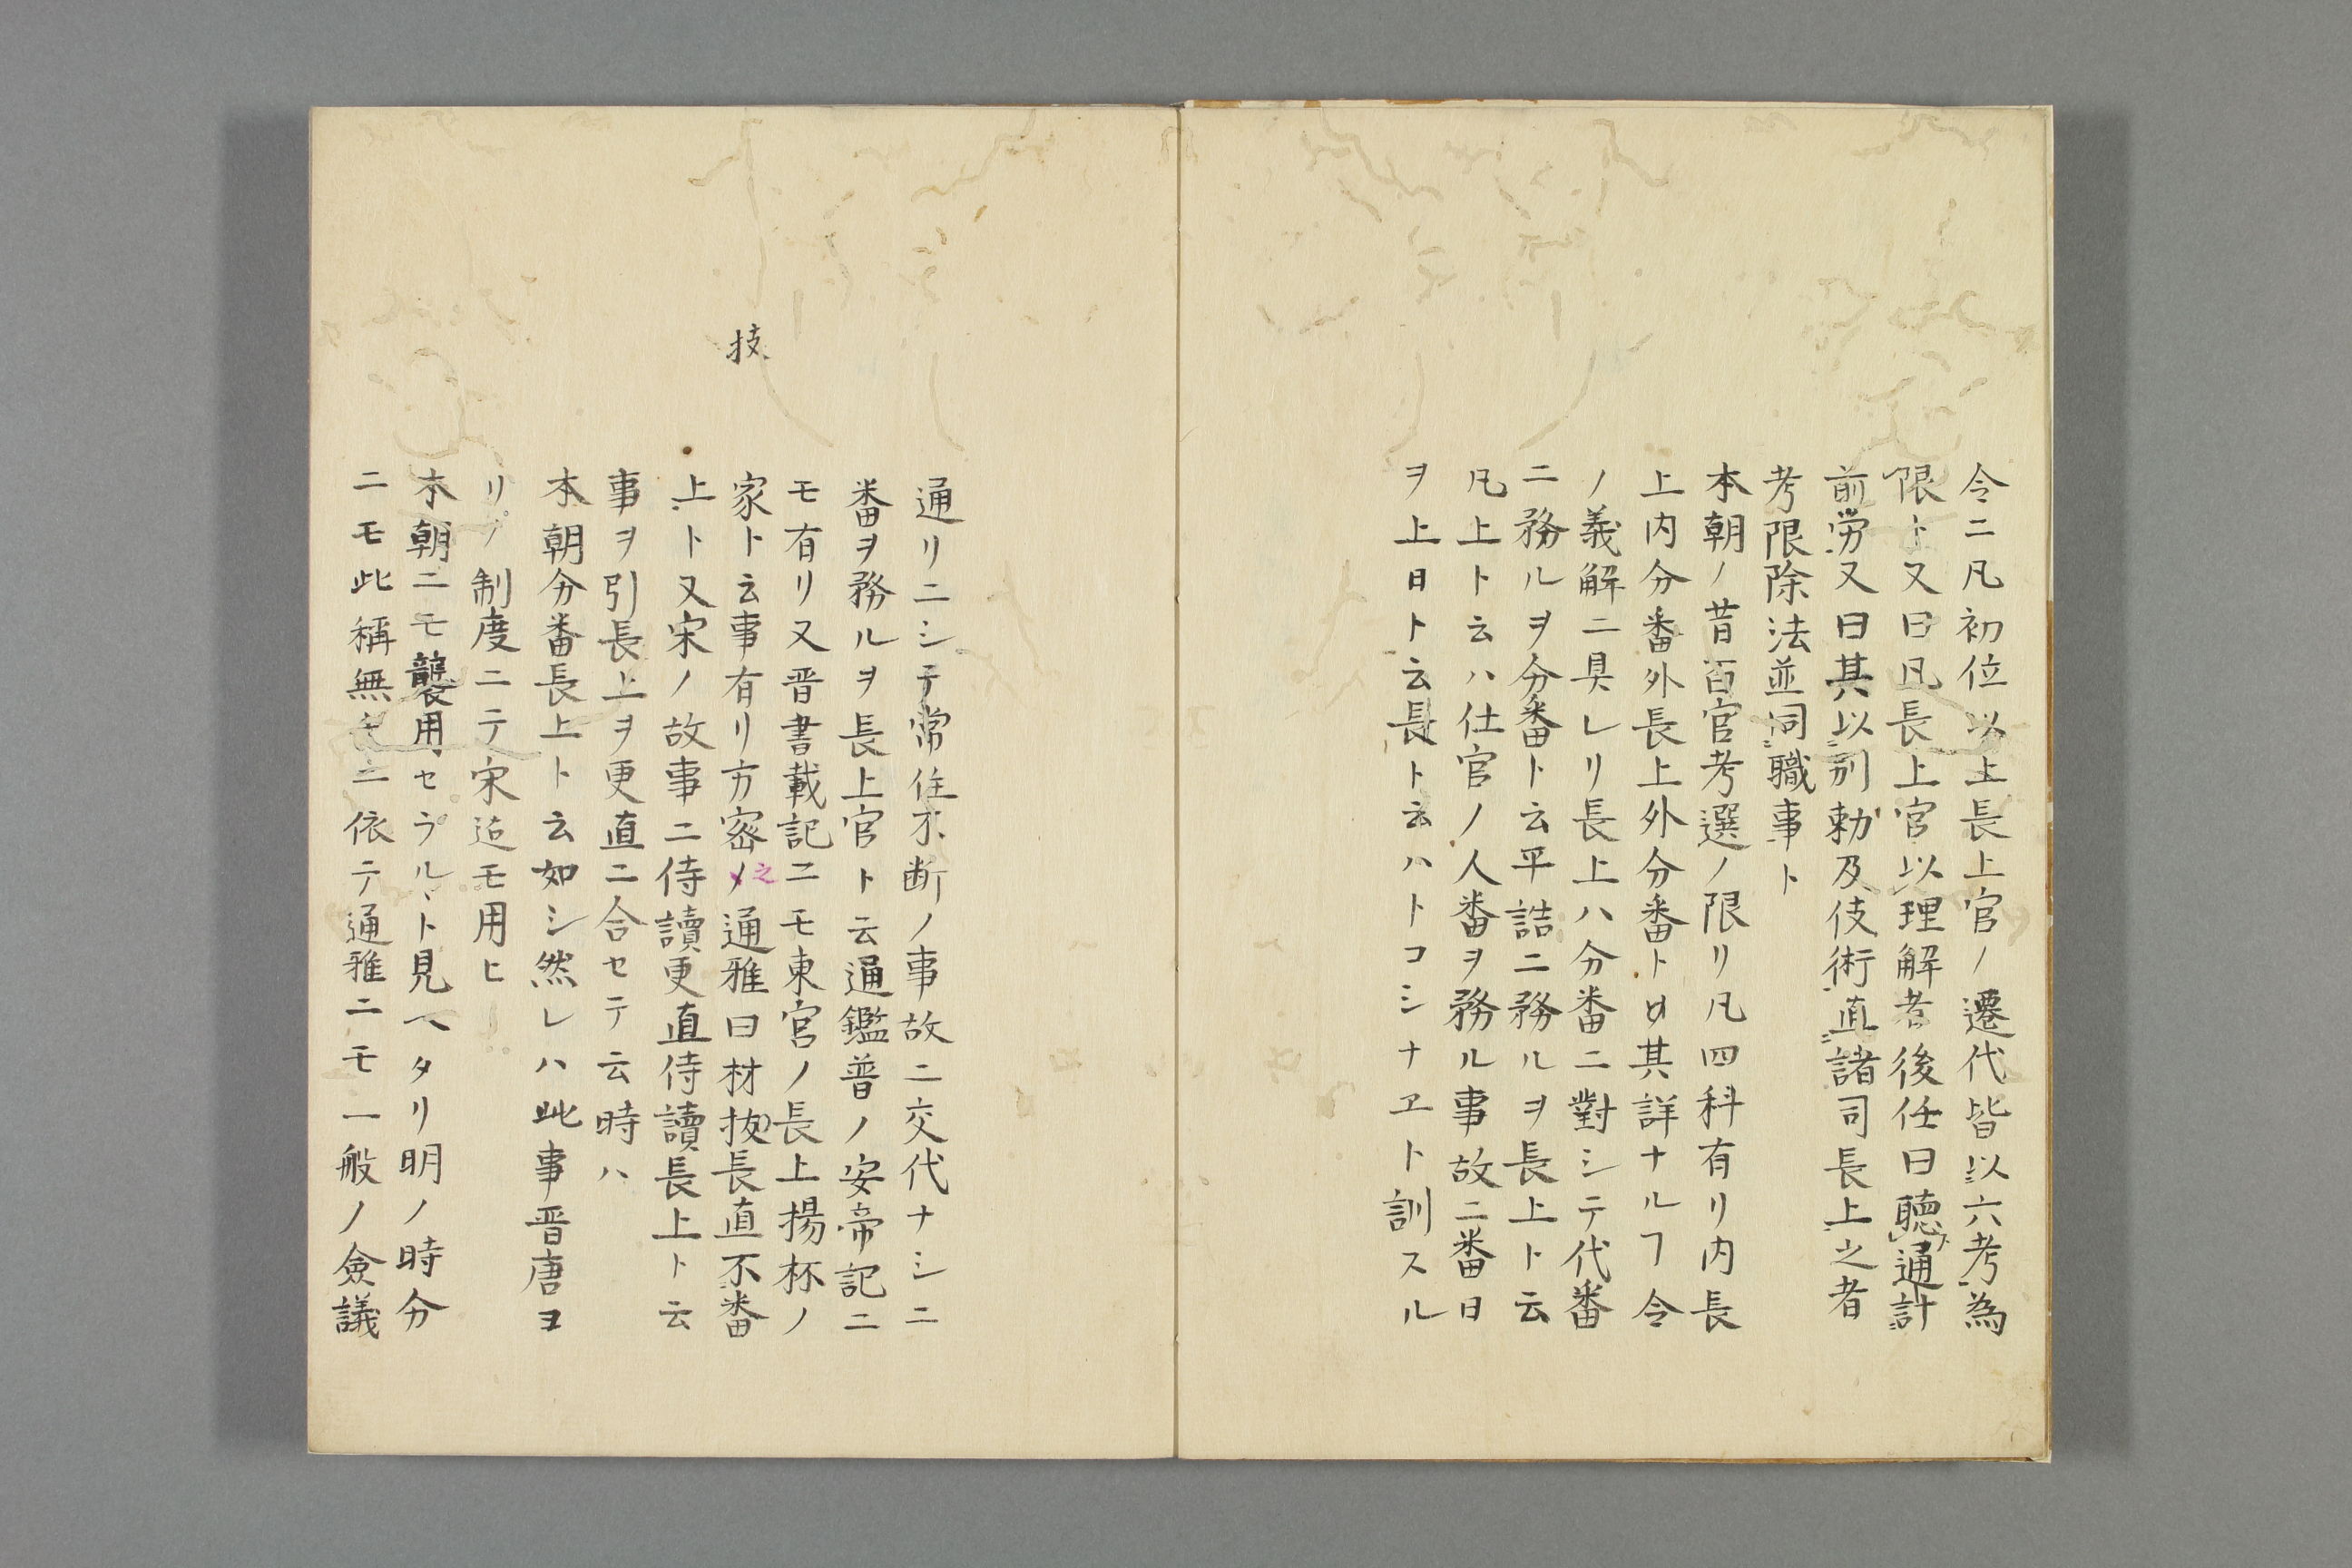 令ニ凡初位以上長上官ノ遷代皆以六考為
限ト又曰凡長上官以理解者後任日聴通計
前労又曰其以別勅及伎術直諸司長上之者
考限除法並同職事ト
本朝ノ昔百官考選ノ限リ凡四科有リ内長
上内分番外長上外分番ト其詳ナルヿ令
ノ義解ニ具レリ長上ハ分番ニ對シテ代番
ニ務ルヲ分番ト云平詰ニ務ルヲ長上ト云
凡上ト云ハ仕官ノ人番ヲ務ル事故ニ番日
ヲ上日ト云長ト云ハトコシナヱト訓スル
通リニシテ常住不断ノ事故ニ交代ナシニ
番ヲ務ルヲ長上官ト云通鑑晋ノ安帝記ニ
モ有リ又晋書載記ニモ東官ノ長上揚杯ノ
技
家ト云事有リ方密ノ之通雅曰材技長直不番
上ト又宋ノ故事ニ侍讀更直侍讀長上ト云
事ヲ引長上ヲ更直ニ合セテ云時ハ
本朝分番長上ト云如シ然レハ此事晋唐ヨ
リノ制度ニテ宋迄モ用ヒ
本朝ニモ襲用セラルヽト見ヘタリ明ノ時分
ニモ此稱無キニ依テ通雅ニモ一般ノ僉議